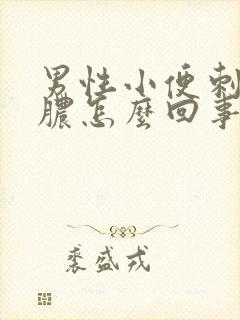 男性小便刺
膿怎麼回事
裘盛戎